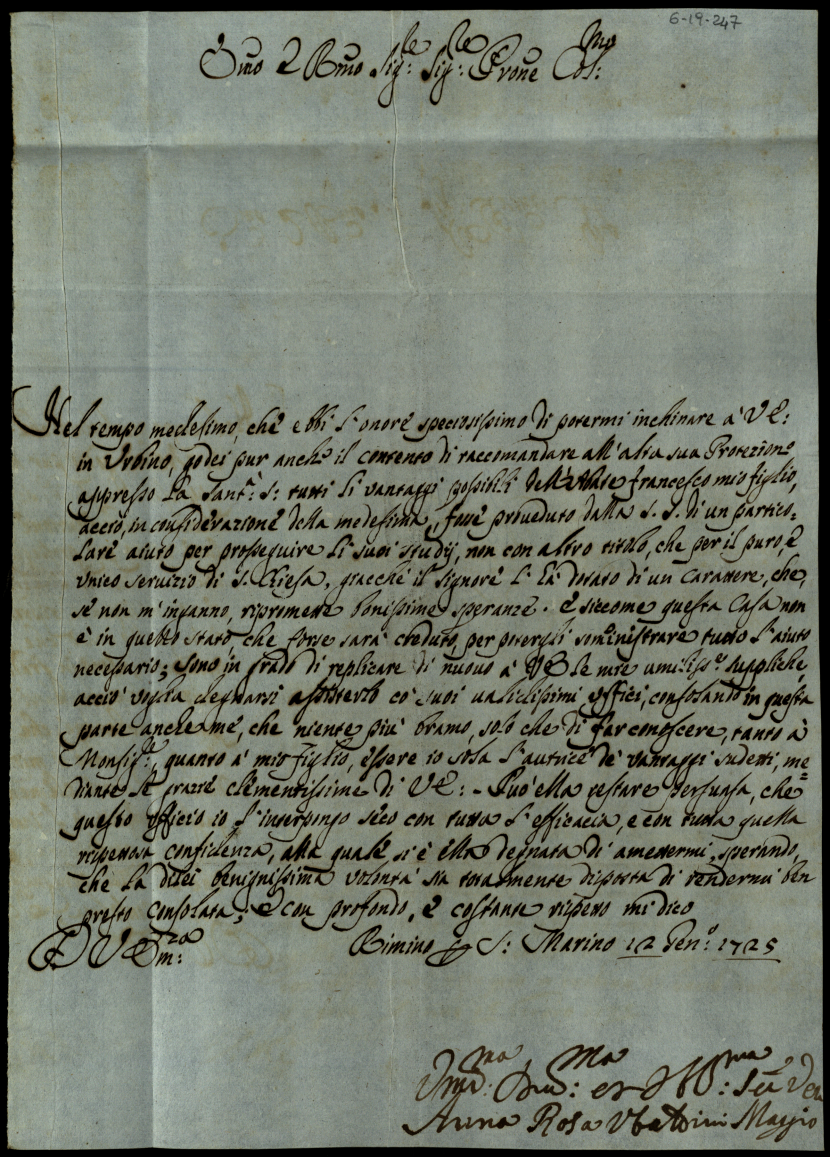 6-19-247
Emo e Rmo Sig:re Sig:re Prone Col:mo
Nel tempo medesimo, che ebbi l'onore speciosissimo di potermi inchinare à V E:
in Urbino, godei pur anche il contento di raccomandare all'alta sua Protezione
appresso la Sant:à S: tutti li vantaggi possibili dell'Abate Francesco mio figlio,
acciò, in considerazione della medesima, fosse proveduto dalla S. S. di un partico=
lare aiuto per proseguire li suoi studij, non con altro titolo, che per il puro, è
unico servizio di S. Chiesa, giacchè il Signore l'hà dotato di un carattere, che,
se non m'inganno, ripromette bonissime speranze. E siccome questa Casa non
è in quello stato che forse sarà creduto, per potergli somministrare tutto l'aiuto
necessario; sono in grado di replicare di nuovo à V E le mie umiliss:e suppliche,
acciò voglia degnarsi assisterlo co' suoi validissimi uffici, consolando in questa
parte anche mè, che niente più bramo, solo che di far conoscere, tanto à
Monsig:re, quanto à mio figlio, essere io sola l'autrice de' vantaggi sudetti, me=
diante le grazie clementissime di V E: - Può ella restare persuasa, che
questo ufficio io l'interpongo seco con tutta l'efficacia, e con tutta quella
rispettosa confidenza, alla quale si è ella degnata di amettermi, sperando,
che la di lei benignissima volontà sia totalmente disposta di rendermi ben
presto consolata; e con profondo, è costante rispetto mi dico
D V Em:za Rimino p S: Marino 12 Gen:o 1725
Um:ma Dev:ma et Obb:ma Se
Anna Rosa Ubaldini Maggio